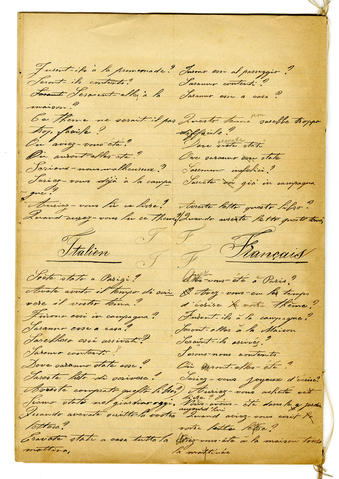 Furent-ils à la promenade?
Seront-ils contents?
Seraient-elles à la
maison?
Ce thème ne serait-il pas
trop facile?
Où avez-vous été?
Où auront-elles été?
Serions-nous malheureux?
Seriez-vous déjà à la campa
gne?
Auriez-vous lu ce livre?
Quand aurez-vous lu ce thème?
Furono essi al passeggio?
Saranno contenti?
Saranno esse a casa?
Questo tema non sarebbe troppo
difficile?
Dove siete stati
Ove saranno esse state
Saremmo infelici?
Sareste già in campagna
Avreste letto questo libro?
Quando avrete letto questo tema
Italien
Français
Siete stato a Parigi?
Avete avuto il tempo di scri
vere il vostro tema?
Furono essi in campagna?
Saranno esse a casa?
Sarebbero essi arrivati?
Saremo contenti?
Dove saranno state esse?
Sareste lieti di scrivere?
Avreste comprato questo libro?
Siamo stati nel giardino oggi.
Quando avevate scritto la vostra
lettera?
Eravate stati a casa tutta la
mattina.
Avez-vous été à Paris?
Avez-vous eu le temps
d'écrire votre thème?
Furent-ils à la campagne?
Seront-elles à la maison
Seraient-ils arrivés?
Serons-nous contents
Où auront-elles été?
Seriez-vous joyeux d'écrire?
Auriez-vous acheté ce
livre?
aujourd'hui
Quand aviez-vous écrit
votre lettre?
Aviez-vous été à la maison toute
la matinée